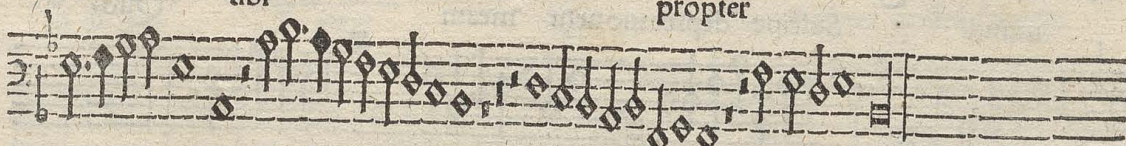 tibi propter